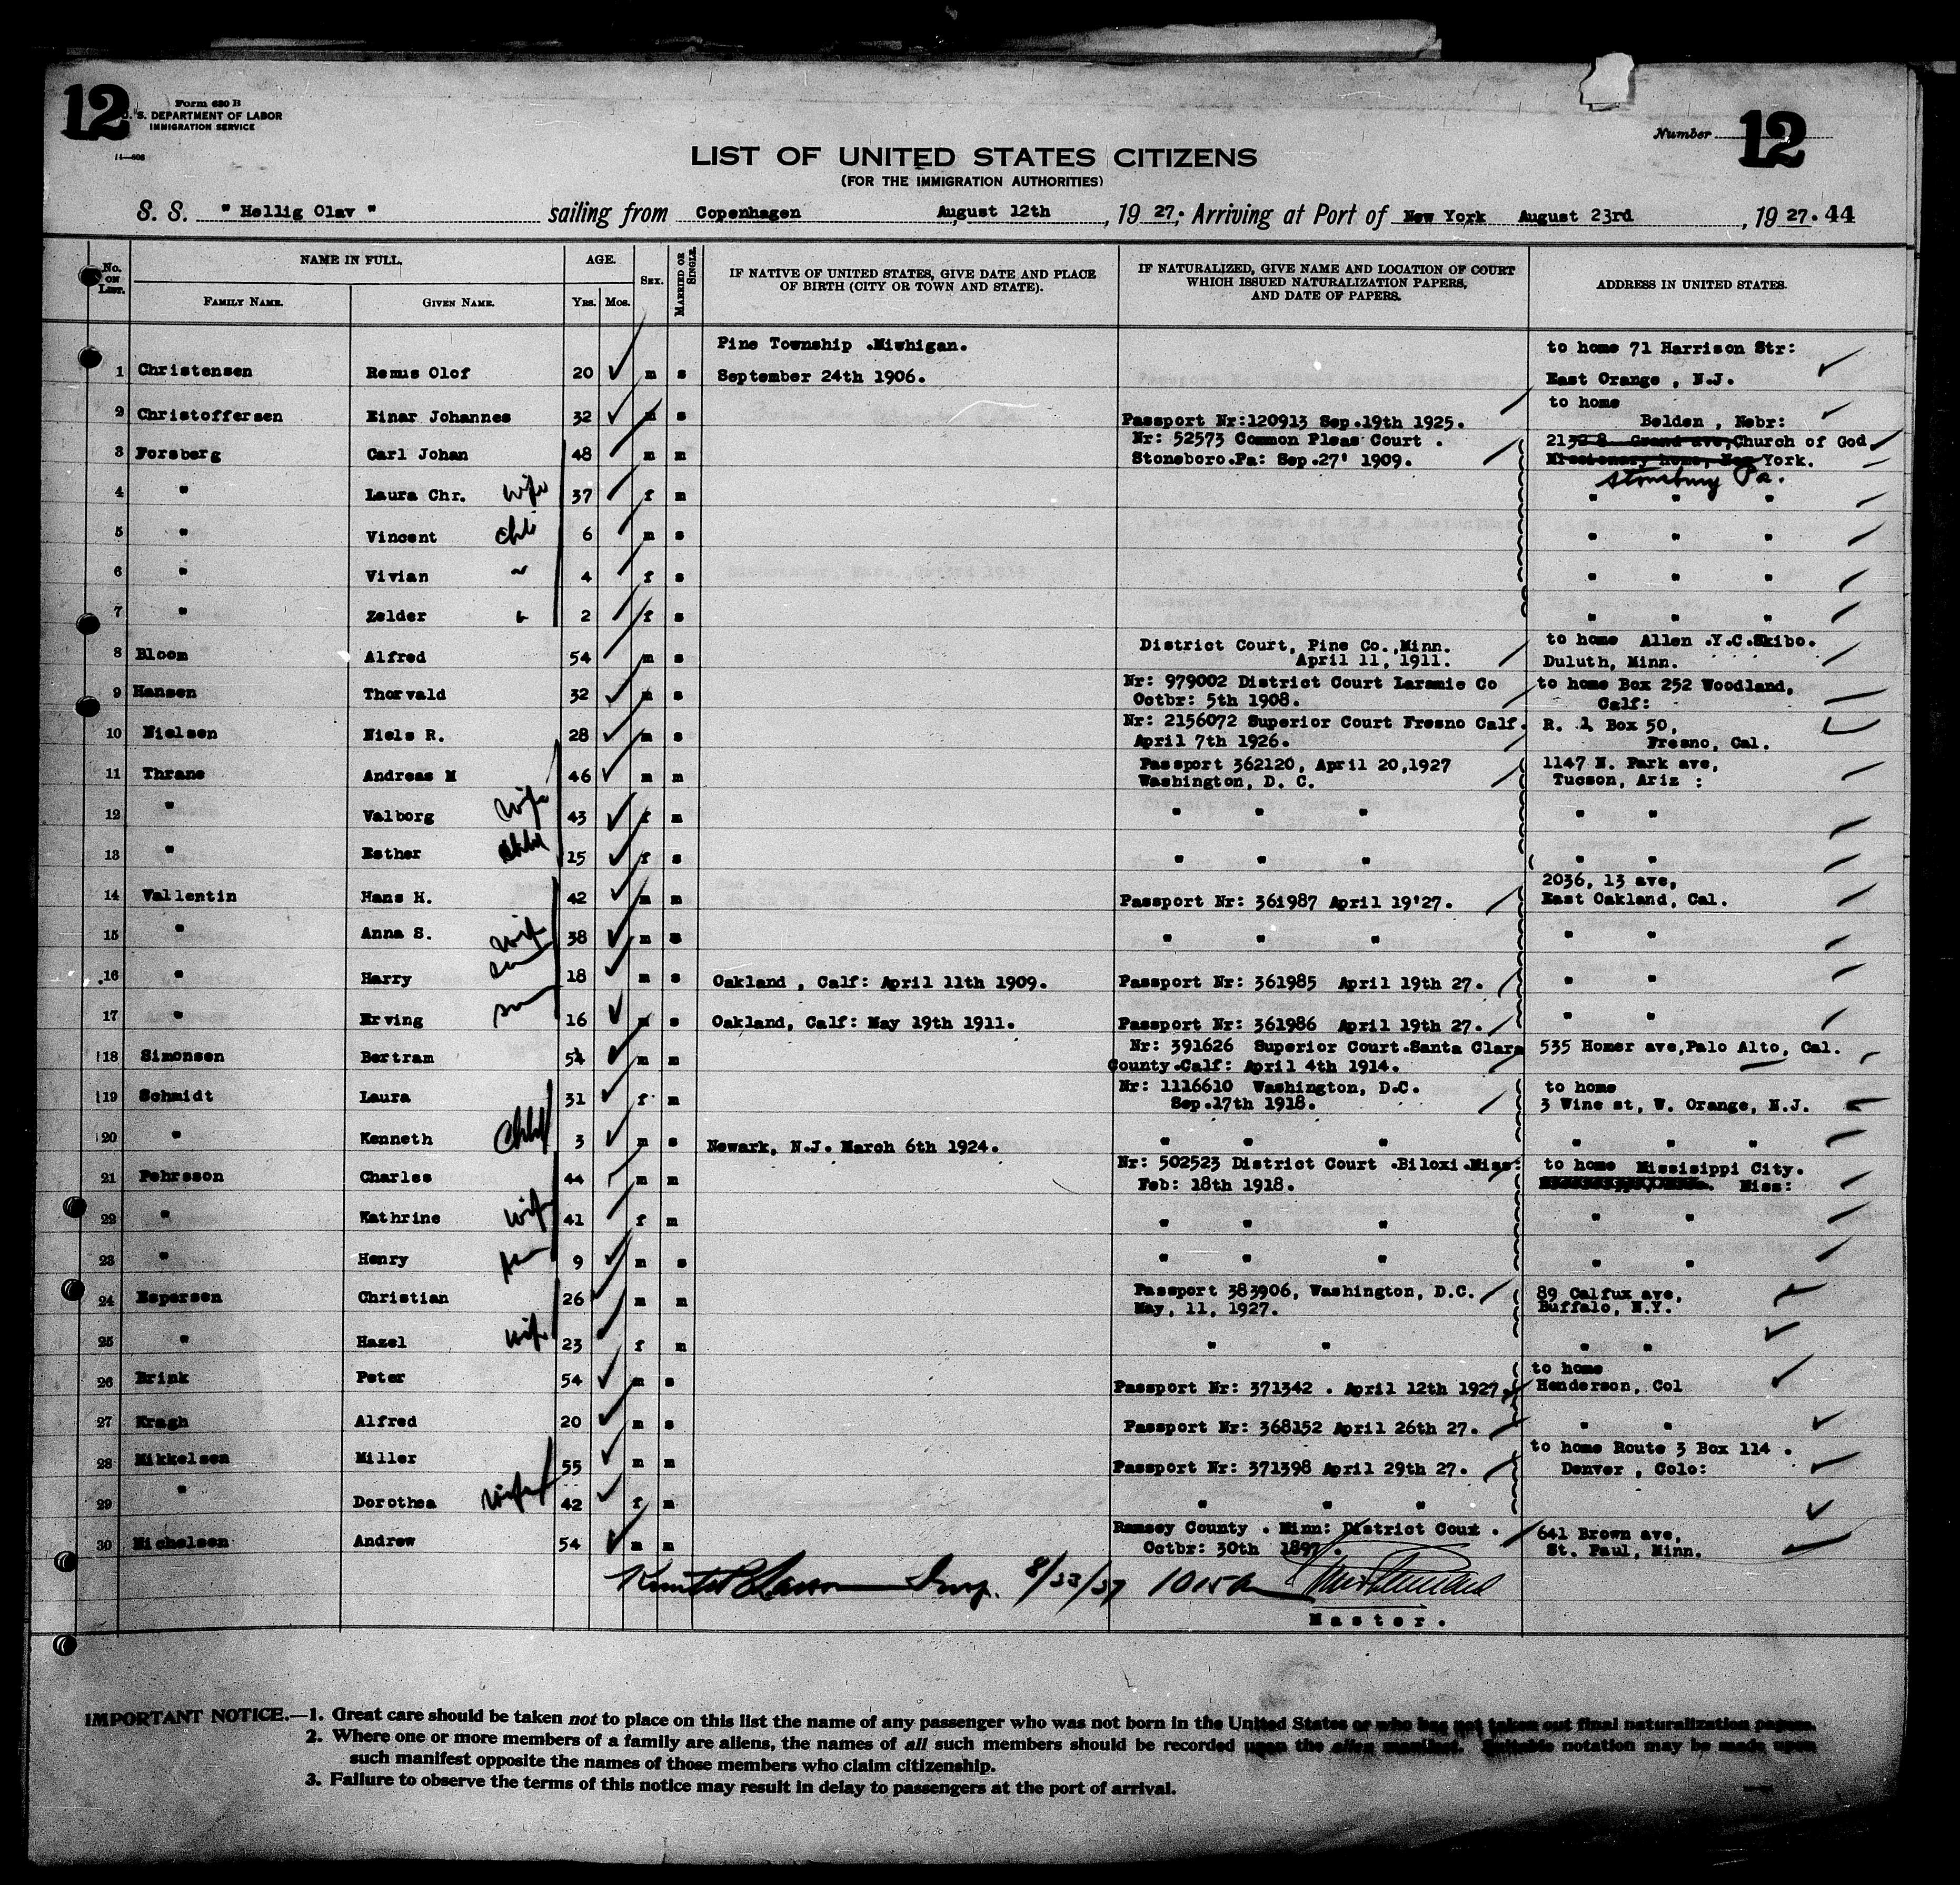 12
Form 630 B
U. S. DEPARTMENT OF LABOR
IMMIGRATION SERVICE
Number 12
LIST OF UNITED STATES CITIZENS
(FOR THE IMMIGRATION AUTHORITIES)
S. S. " Hellig Olav " sailing from Copenhagen August 12th, 19 27; Arriving at Port of New York August 23rd, 19 27. 44
No. ON LIST. NAME IN FULL. FAMILY NAME. GIVEN NAME. AGE. YRS. MOS. SEX. MARRIED OR SINGLE. IF NATIVE OF UNITED STATES, GIVE DATE AND PLACE OF BIRTH (CITY OR TOWN AND STATE). IF NATURALIZED, GIVE NAME AND LOCATION OF COURT WHICH ISSUED NATURALIZATION PAPERS, AND DATE OF PAPERS. ADDRESS IN UNITED STATES.
Pine Township .Miwhigan. to home 71 Harrison Str:
1 Christensen Remus Olof 20 m s September 24th 1906. East Orange , N.J.
to home
2 Christoffersen Einar Johannes 32 m s Passport Nr:120913 Sep.19th 1925. Belden , Nebr:
Nr: 52573 Common Pleas Court . 2132 8 Grand ave,Church of God
3 Forsberg Carl Johan 48 m m Stoneboro.Pa: Sep.27' 1909. Missionary home, New York.
Pa.
4 " Laura Chr. wife 37 f m " " "
5 " Vincent 6 m s " " "
6 " Vivian 4 f s " " "
7 " Zelder 2 f s " " "
District Court, Pine Co.,Minn. to home Allen .Y.C.Skibo.
8 Bloom Alfred 54 m s April 11, 1911. Duluth, Minn.
Nr: 979002 District Court Laramie Co to home Box 252 Woodland,
9 Hansen Thorvald 32 m s Octbr: 5th 1908. Calf:
Nr: 2156072 Superior Court Fresno Calf. R. 1, Box 50,
10 Nielsen Niels R. 28 m s April 7th 1926. Fresno, Cal.
Passport 362120, April 20,1927 1147 N. Park ave,
11 Thrane Andreas M 46 m m Washington, D. C. Tucson, Ariz :
12 " Valborg wife 43 f m " " " " "
13 " Esther child 15 f s " " " " "
2036, 13 ave,
14 Vallentin Hans H. 42 m m Passport Nr: 361987 April 19'27. East Oakland, Cal.
15 " Anna S. wife 38 m " " " " "
16 " Harry son 18 m s Oakland , Calf: April 11th 1909. Passport Nr: 361985 April 19th 27. " "
17 " Erving son 16 m s Oakland, Calf: May 19th 1911. Passport Nr: 361986 April 19th 27. " "
Nr: 391626 Superior Court.Santa Clara
18 Simonsen Bertram 54 m m County.Calf: April 4th 1914. 535 Homer ave,Palo Alto, Cal.
Nr: 1116610 Washington, D.C. to home
19 Schmidt Laura 31 f m Sep.17th 1918. 3 Wine st, W. Orange, N.J.
20 " Kenneth Child 3 m s Newark, N.J. March 6th 1924. " " " " " "
Nr: 502523 District Court .Biloxi.Miss: to home Missisippi City.
21 Pehrsson Charles 44 m m Feb: 18th 1918. Miss:
22 " Kathrine wife 41 f m " " " " "
23 " Henry 9 m s " " " " "
Passport 383906, Washington, D.C. 89 Calfux ave,
24 Espersen Christian 26 m m May, 11, 1927. Buffalo, N.Y.
25 " Hazel wife 23 f m " " " "
to home
26 Brink Peter 54 m s Passport Nr: 371342 . April 12th 1927. Henderson, Col
27 Kragh Alfred 20 m s Passport Nr: 368152 April 26th 27. " "
to home Route 3 Box 114 .
28 Mikkelsen Miller 55 m m Passport Nr: 371398 April 29th 27. Denver , Colo:
29 " Dorothea wife 42 f m " " "
Ramsey County . Minn: District Cout . 641 Brown ave,
30 Michelsen Andrew 54 m m Octbr: 30th 1897. St. Paul, Minn.
Insp. 8/23/27 1015a
Master.
IMPORTANT NOTICE.—1. Great care should be taken not to place on this list the name of any passenger who was not born in the United States or who has not taken out final naturalization papers.
2. Where one or more members of a family are aliens, the names of all such members should be recorded upon the alien manifest. Suitable notation may be made upon
such manifest opposite the names of those members who claim citizenship.
3. Failure to observe the terms of this notice may result in delay to passengers at the port of arrival.